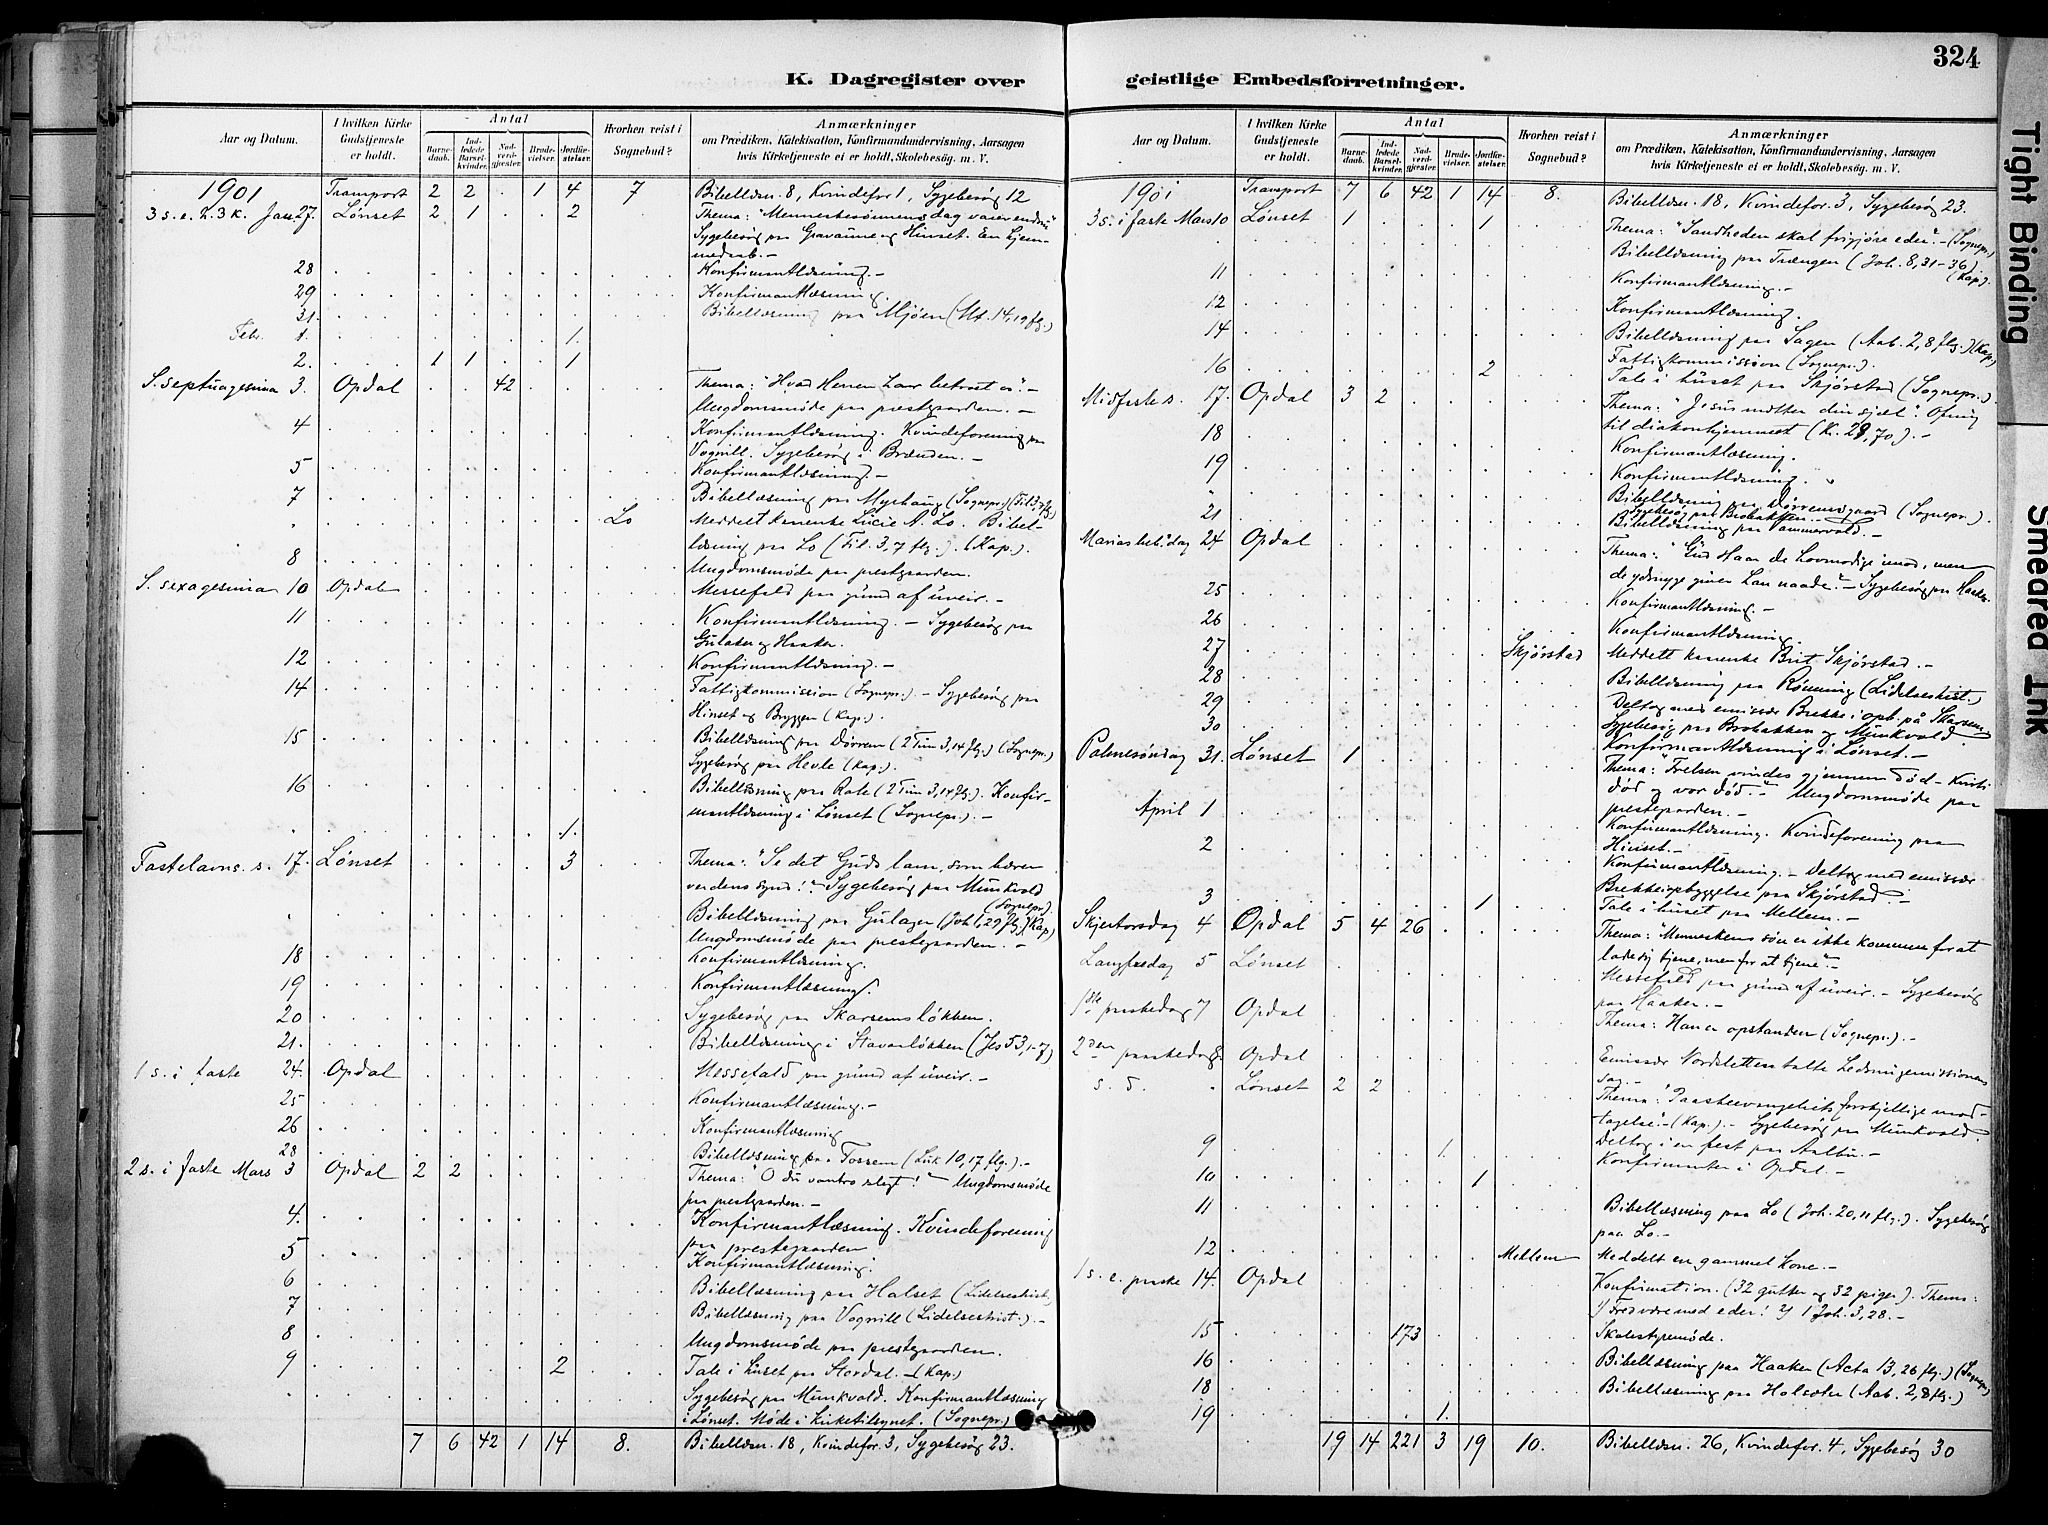 324
K. Dagregister over
geistlige Embedsforretninger.
Tight Binding
Smeared Ink
Aar og Datum.
I hvilken Kirke Gudstjeneste er holdt.
Antal
Barnedaab.
Indledede Barselkvinder.
Nadverdgjester.
Brudevielser.
Jordfæstelser.
Hvorhen reist i Sognebud?
Anmærkninger
om Prædiken, Katekisation, Konfirmandundervisning, Aarsagen
hvis Kirketjeneste ei er holdt, Skolebesøg. m. V.
1901 Transport 2 2 . 1 4 7 Bibellæsn. 8, Kvindefor 1, Sygebesøg 12
3 s. e. h. 3 k. Jan. 27. Lønset 2 1 . . 2 Thema: "Menneskesønnens dag
Sygebesøg paa Gravaune og Hinset. En hjem-
medaab.-
28 Konfirmantlæsning.-
29 Konfirmantlæsning.
31. Bibellæsning paa Mjøen (Mt. 14,
Febr. 1. 1.
2. 1 1 . . 1
S. septuagesima 3. Opdal . . 42 Thema: "Hvad Herren har betroet os".-
Ungdomsmøde paa prestgaarden.-
4 Konfirmantlæsning. Kvindeforening paa
Vognill. Sygebesøg i Brænden.-
5 Konfirmantlæsning.-
7 Bibellæsning paa Myrhaug (Sognepr.)
" Lo Meddelt kranke Lucie A. Lo. Bibel-
læsning paa Lo (Fil. 3,7 flg.). (Kap.).
8 Ungdomsmøde paa prestgaarden.
S. sexagesima 10 Opdal Messefald paa grund af uveir.-
11 Konfirmantlæsning.- Sygebesøg paa
Gulaker og Haaker.
12 Konfirmantlæsning.-
14 Fattigkommission (Sognepr.).- Sygebesøg paa
Hinset og Bryggen (Kap.).
15 Bibellæsning paa Dørrem (2 Tim 3,14 flg.) (Sognepr.)
Sygebesøg paa Hevle (Kap.).
16 Bibellæsning paa Rate (2 Tim 3,14 flg.). Konfir-
mantlæsning i Lønset (Sognepr.).-
1.
Fastelavns. s. 17. Lønset 3 Thema: "Se det Guds lam, som bærer
verdens synd!" Sygebesøg paa Munkvold
(Sognepr.)
Bibellæsning paa Gulager (Joh 1,29 flg.) (Kap)
Ungdomsmøde paa prestegaarden.-
18 Konfirmantlæsning.
19 Konfirmantlæsning.
20 Sygebesøg paa Skarsemsløkken.
21. Bibellæsning i Stavaløkken (Jes 53,1-7)
1 s. i faste 24. Opdal Messefald paa grund af uveir.-
25 Konfirmantlæsning.-
26 Konfirmantlæsning
28 Bibellæsning paa Fossem (Luk 10,17 flg.).-
2 s. i faste Mars 3 Opdal 2 2 Thema: "O du vantro slegt!" Ungdomsmøde
paa prestgaarden.-
4. Konfirmantlæsning. Kvindeforening
paa prestegaarden
5 Konfirmantlæsning.
6 Bibellæsning paa Halset (Lidelseshist.)
7 Bibellæsning paa Vognill (Lidelseshist.).-
8 Ungdomsmøde paa prestegaarden.
9 2 Tale i huset paa Stordal.- (Kap.)
Sygebesøg paa Munkvold. Konfirmantlæsning
i Lønset. Møde i kirketilsynet. (Sognepr.)
7 6 42 1 14 8. Bibellæsn. 18, Kvindefor. 3, Sygebesøg 23.
Aar og Datum.
I hvilken Kirke Gudstjeneste er holdt.
Antal
Barnedaab.
Indledede Barselkvinder.
Nadverdgjester.
Brudevielser.
Jordfæstelser.
Hvorhen reist i Sognebud?
Anmærkninger
om Prædiken, Katekisation, Konfirmandundervisning, Aarsagen
hvis Kirketjeneste ei er holdt, Skolebesøg. m. V.
1901 Transport 7 6 42 1 14 8. Bibellæsn. 18, Kvindefor. 3, Sygebesøg 23.
3 s. i faste Mars 10 Lønset 1 . . . 1 Thema: "Sandheden skal frigjøre eder".- (Sognepr.)
Bibellæsning paa Trængen (Joh. 8,31-36)
(Kap.).
11 Konfirmantlæsning.-
12 Konfirmantlæsning.
14 Bibellæsning paa Sagen (Aab. 2,8 flg.) (Kap.)
Fattigkommission (Sognepr.).
16 2 Tale i huset paa Skjørstad (Sognepr.).
Midfaste s. 17. Opdal 3 2 Thema: "Jesus mætter din sjæl". Ofring
til diakonhjemmet (Kr. 28,70).-
18 Konfirmantlæsning.
19 Konfirmantlæsning.
" Bibellæsning paa Dørremsgaard (Sognepr.).
Sygebesøg paa Brobakken.-
21 Bibellæsning paa Vammervold.-
Marias beb. dag 24 Opdal Thema: "Gud staar de hovmodige imod, men
de ydmyge giver han naade".- Sygebesøg paa Haaker.
25 Konfirmantlæsning.-
26 Konfirmantlæsning.
27 Skjørstad Meddelt kranke Brit Skjørstad.-
28 Bibellæsning paa Rønning (Lidelseshist.)
29 Deltog med emissær Brekke i opb. på Skarsem
30 Sygebesøg paa Brobakken og Munkvold
Konfirmantlæsning i Lønset.-
Palmesøndag 31. Lønset 1 Thema: "Frelsen vindes gjennem død - Kristi
død og vor død".- Ungdomsmøde paa
prestegaarden.-
April 1 Konfirmantlæsning. Kvindeforening paa
Hinset.-
2 Konfirmantlæsning.- Deltog med emissær
Brekke i opbyggelse paa Skjørstad.-
3 1 Tale i huset paa Mellem.-
Skjertorsdag 4 Opdal 5 4 26 Thema: "Menneskens søn er ikke kommen for at
lade sig tjene, men for at tjene".-
Langfredag 5 Lønset Messefald paa grund af uveir.- Sygebesøg
paa Haaker.-
1ste paaskedag 7 Opdal Thema: Han er opstanden (Sognepr.).-
2den paaskedag 8. Opdal Emissær Nordsletten talte Lodsmissionens
sag.-
s. d. " Lønset 2 2 Thema: "Paaskeevangeliets forskjellige mod-
tagelse".- (Kap.).- Sygebesøg paa Munkvold.
9 1. Deltog i en fest paa Aalbu.-
10 1 Konfirmanter i Opdal.-
11 Bibellæsning paa Lo (Joh. 20,11 flg.). Sygebesøg
paa Lo.-
12 Mellem Meddelt en gammel kone.-
1 s. e. paaske 14. Opdal Konfirmation. (32 gutter og 32 piger). Thema:
1) Fred være med eder! 2) 1 Joh. 3,28.-
15 173 Skolestyremøde.
16 Bibellæsning paa Haaker (Acta 13,26 flg.) (Sognepr)
18 Bibellæsning paa Holsæter (Aab. 2,8 flg.)
19 1.
19 14 221 3 19 10. Bibellæsn. 26, Kvindefor. 4, Sygebesøg 30